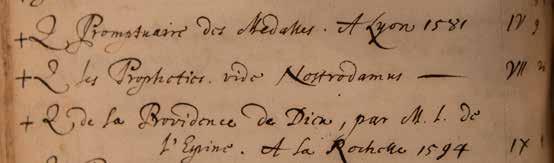 + Q Promptuaire des Medalles. A Lyon 1581 IV 9
+ Q les Propheties. vide Nostrodamus — VII
+ Q de la Providence de Dieu, par M. L. de
l'Espine. A la Rochelle 1594 IX